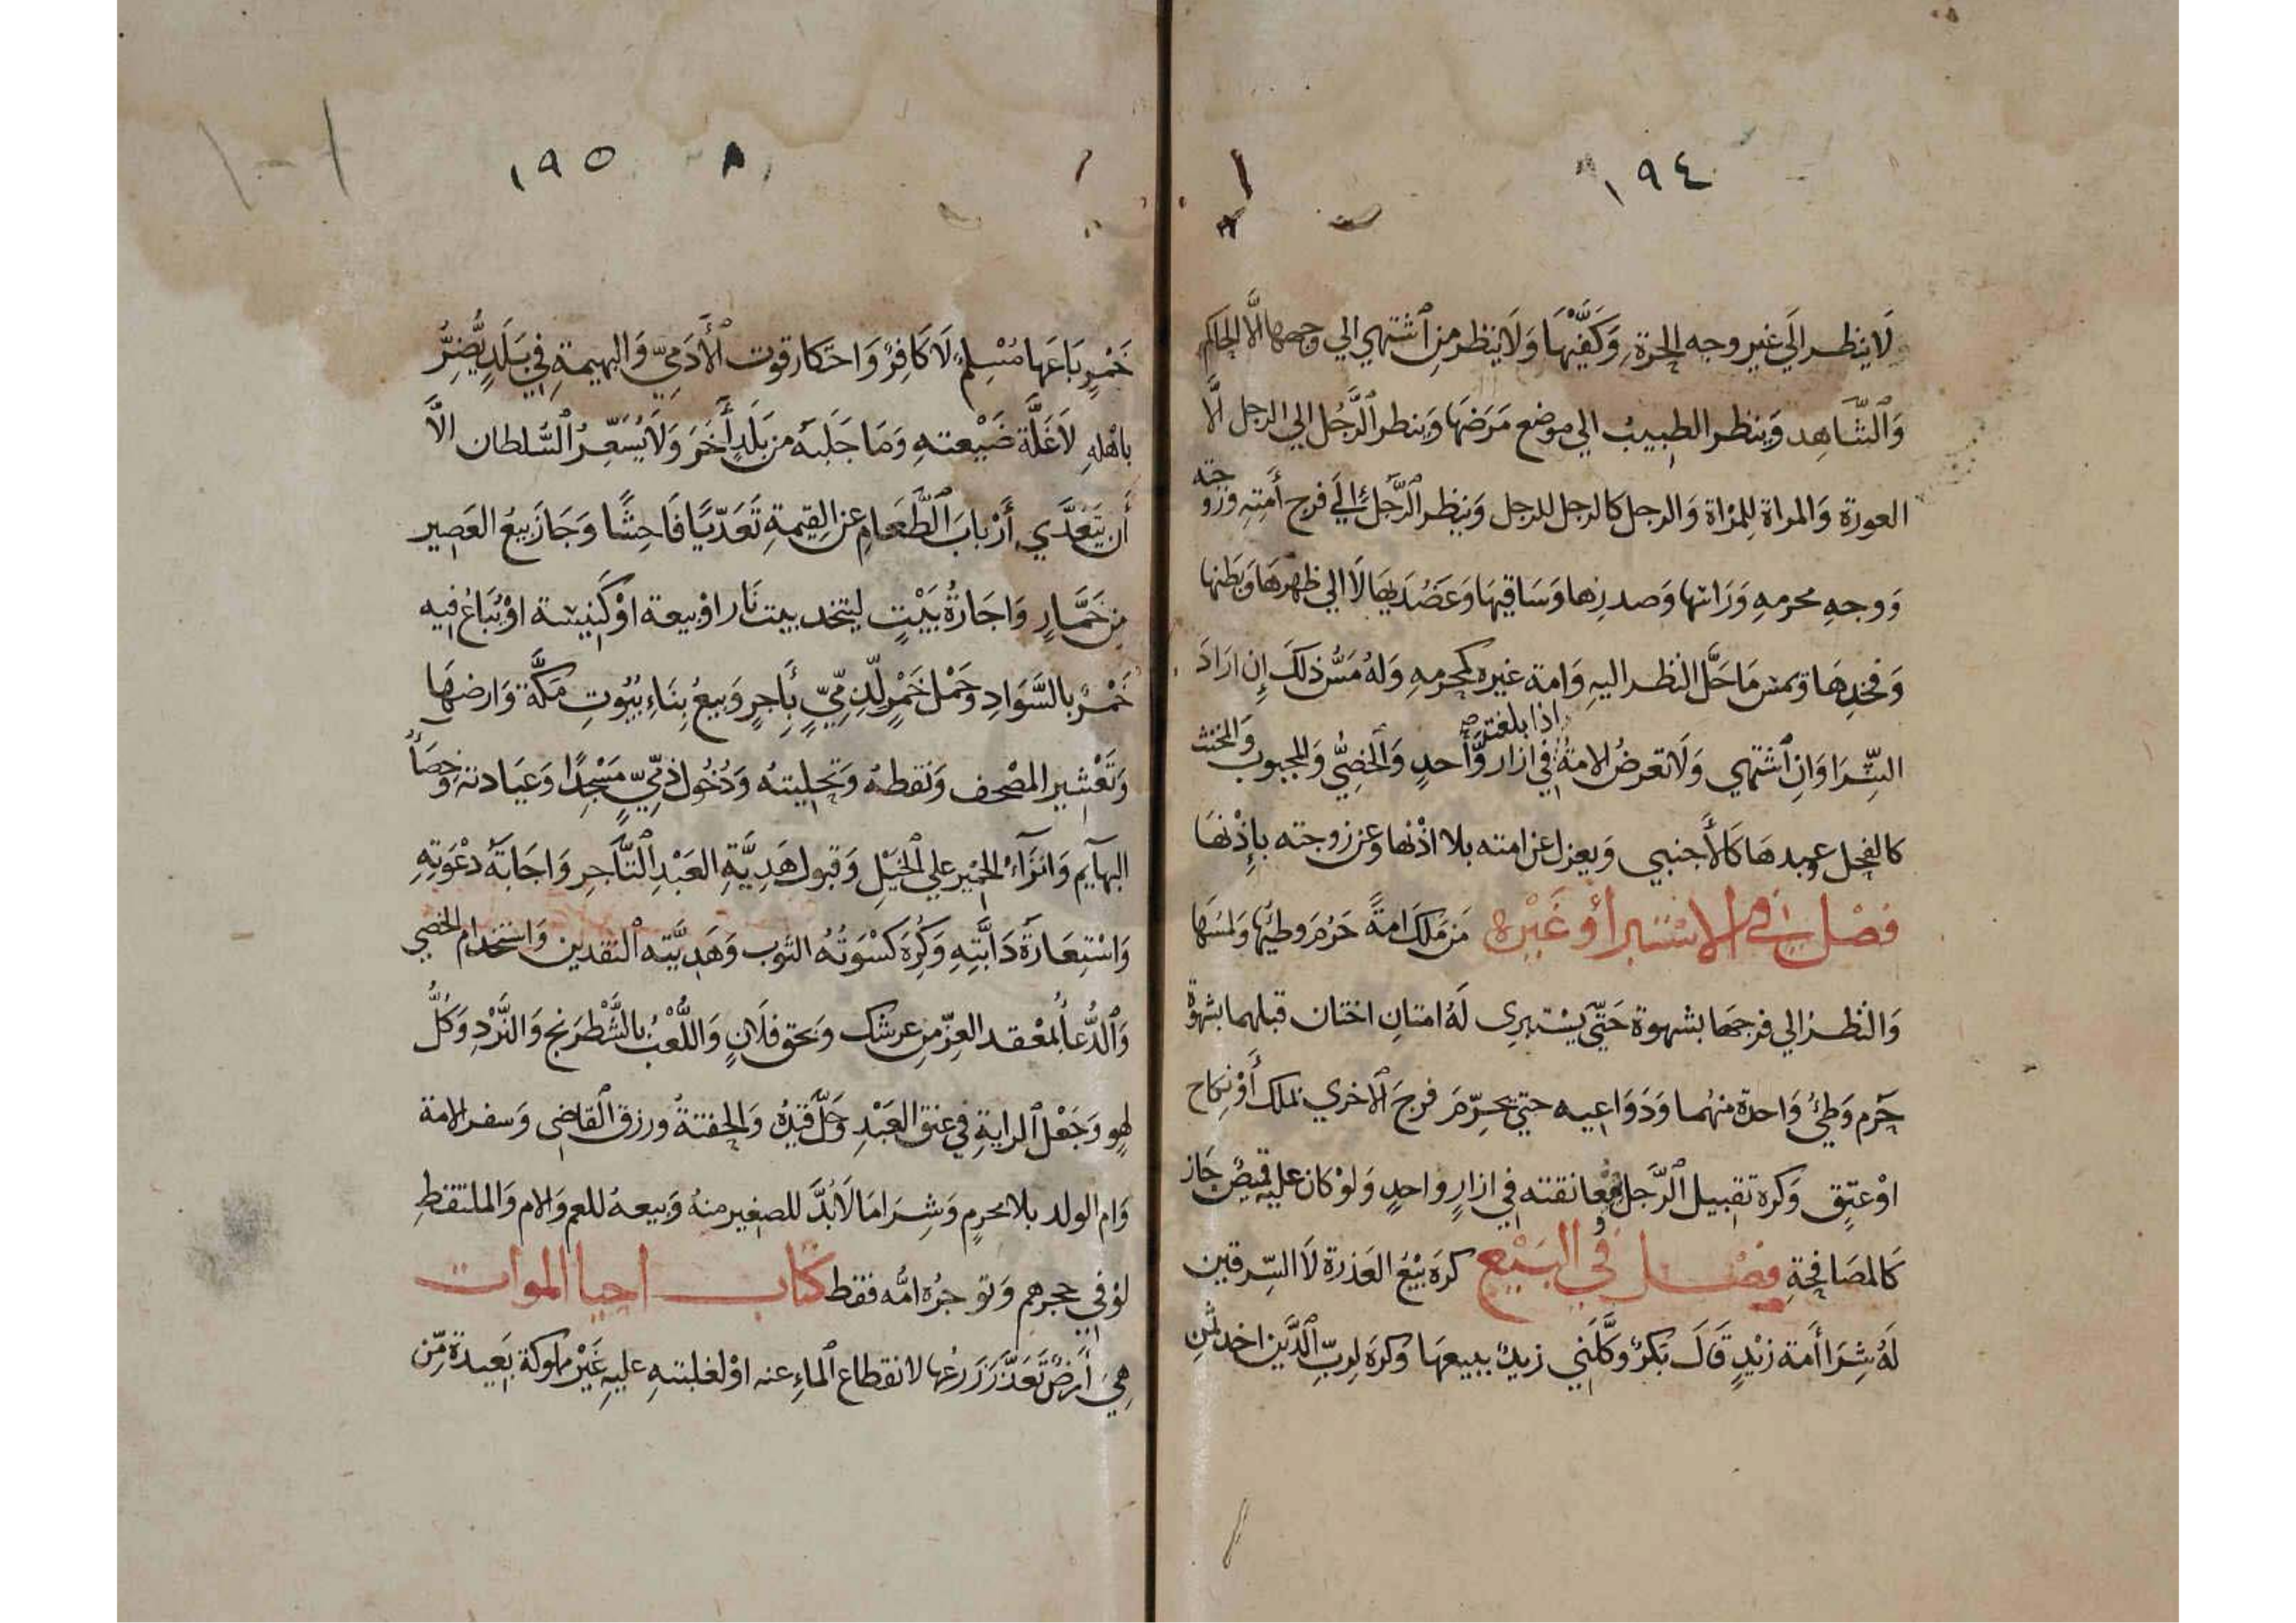 ١٩٤
لَا ينظر الَي غير وجه الحرة وَكَفَّيْهَا وَلَا ينظر من ٱشتهي الي وجهها الَّا الحاكم
وَٱلشَّاهِد وَينظر الطبيب الي موضع مَرَضهَا وَينظر ٱلرَّجُل الي الرجل الَّا
العورة وَالمراة لِلمرْاة وَالرجل كالرجل للرجل وَينظر ٱلرَّجُل إِلَي فرج أَمتِهِ وزوجته
وَوجهِ محرمهِ وَرَاسها وَصدرِها وَسَاقيهَا وَعَضُدَيهَا لَا الي ظهرهَا وَبَطنها
وَفخدِهَا وَيمس مَا حَلَّ النظر اليهِ وَامة غيره كمحرمهِ وَلهُ مَسُّ ذلكَ إِن ارَادَ
السِّرَا وَانِ ٱشتهي وَلَا تعرضُ الامةُ اذا بلغت في ازار وَّاحدٍ وَٱلخصِيُّ وَالمجبوب وَالمخنث
كالفحل وعبدهَا كَالأَجنبي وَيعزل عن امته بلا اذْنها وَعن زوجته بِاِذْنهَا
فَصْل في الاسْتبرا وَغَيْره مَن مَلكَ امةً حَرُمَ وَطئُها وَلمسَهَا
وَالنظرُ الي فرجهَا بشهوة حَتّي يسْتبري لَهُ امتانِ اختان قبلهما بشهوة
حَرم وَطيُ وَاحدة منهُما وَدَوَاعيه حتي يحرِّمَ فرجَ ٱلاخري بملك أَوْ نِكاح
اوْ عتِقٍ وَكره تقبيل ٱلرَّجل وَمعانقته في ازارٍ واحدٍ وَلوْ كان عليه قميصٌ جَاز
كَالمصَافحةِ فصْل في البَيْع كرهَ بَيْعَ العَذرة لَا السِّرقين
لَهُ شِرَا أَمة زيْدٍ قَالَ بَكرٌ وَكَّلَني زيدٌ ببيعهَا وَكرهَ لِربِّ ٱلدَّين اخد ثمنِ
١٩٥
خَمْرٍ بَاعَها مُسْلِمٌ لَا كَافِرٌ وَاحتكار قوت ٱلأَدَمِيّ وَالبهيمةِ في بَلَدٍ يُّضِرُّ
باهْلهِ لَا غَلَّة ضَيْعتهِ وَمَا جَلَبهُ من بَلَدٍ أَخَرَ وَلَا يُسَعِّرُ ٱلسُّلطان الَّا
أَن يَتَعَدَّي أَرْبابَ ٱلطَّعَامِ عن القِيمةِ تَعَدِّيًا فَاحِشًا وَجَازَ بيعُ العَصِير
مِن خَمَّارٍ وَاجَارةُ بَيْتٍ ليتخد بيت نَار اوْ بيعة اوْ كَنيسة اوْ يُبَاعُ فيه
خَمْرٌ بالسَّوَادِ وَحَمْل خَمْرٍ لّذِمّيٍّ بِأَجرٍ وَبيعُ بِنَاءِ بُيُوتِ مَكَّة وَارضهَا
وَتَعْشِير المصْحف وَنَقطهُ وَتحلِيتهُ وَدُخُول ذمّيٍّ مَسْجدًا وَعيَادته وَخِصَأُ
البهآيم وَانزَآءُ الحَمير علي الخيْلِ وَقبول هَدِيَّةِ العَبْدِ ٱلتَّاجِرِ وَاجَابَةُ دعْوَتِهِ
وَاسْتِعَارَة دَابَّتِهِ وَكُرِهَ كسْوَتُهُ الثوب وَهَديَّته ٱلنقدين وَاستخدام الخصي
وَٱلدُّعَاُ بمعْقد العِزّ من عرشك وَبحق فلَانٍ وَاللَّعْبُ بالشَّطْرَنج وَالنَّرْدِ وَكُلُّ
لهوٍ وَجَعْل ٱلراية في عنق العَبْدِ وَحَلّ قَيْدِهُ وَالحقنةُ وَرزق ٱلقاضي وَسفر الامة
وَام الولد بلا محرمٍ وَشِرَا مَا لَا بُدَّ للصغير منهُ وَبيعهُ للعم وَالام وَالملتقطِ
لوْ في حجرهم وَتوجرُه امُّه فقط كتاب احيا الموات
هِيَ أَرضٌ تَعَذَّرَ زَرعُها لانقطاع ٱلماءِ عنه اوْ لغلبتهِ عليهِ غَيْرَ مملوكة بَعِيدة مّن